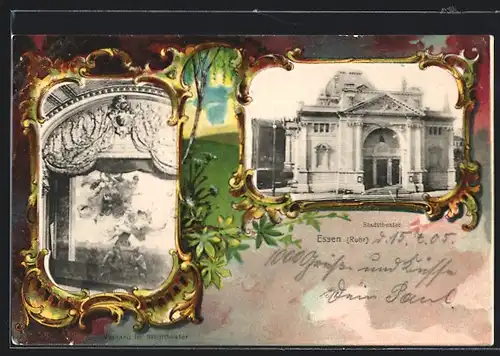 Stadttheater
Essen (Ruhr) d. 15. 6. 05.
1000 Grüße und Küsse
Dein Paul.
Vorhang im Stadttheater